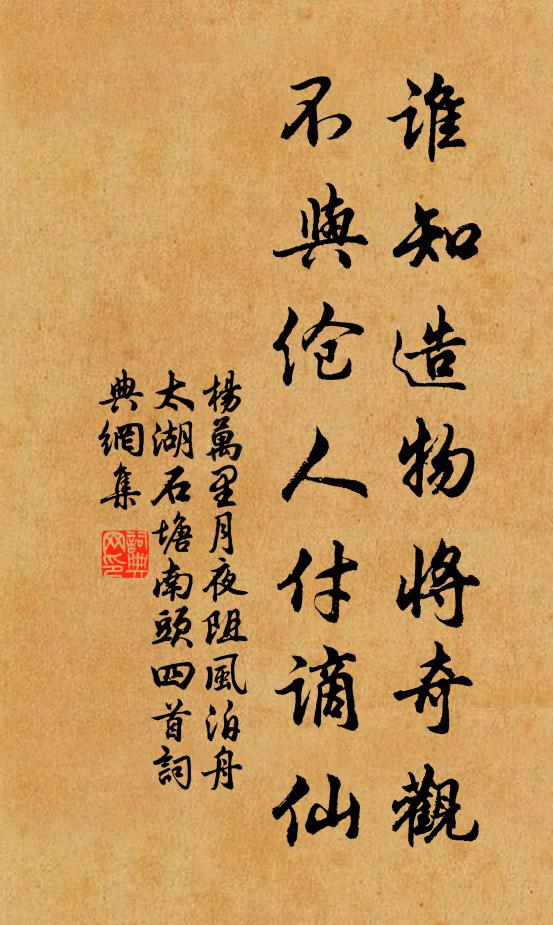 誰知造物將奇觀
不與傖人付謫仙
楊萬里月夜阻風泊舟
太湖石塘南頭四首詞
典網集
詞典網印